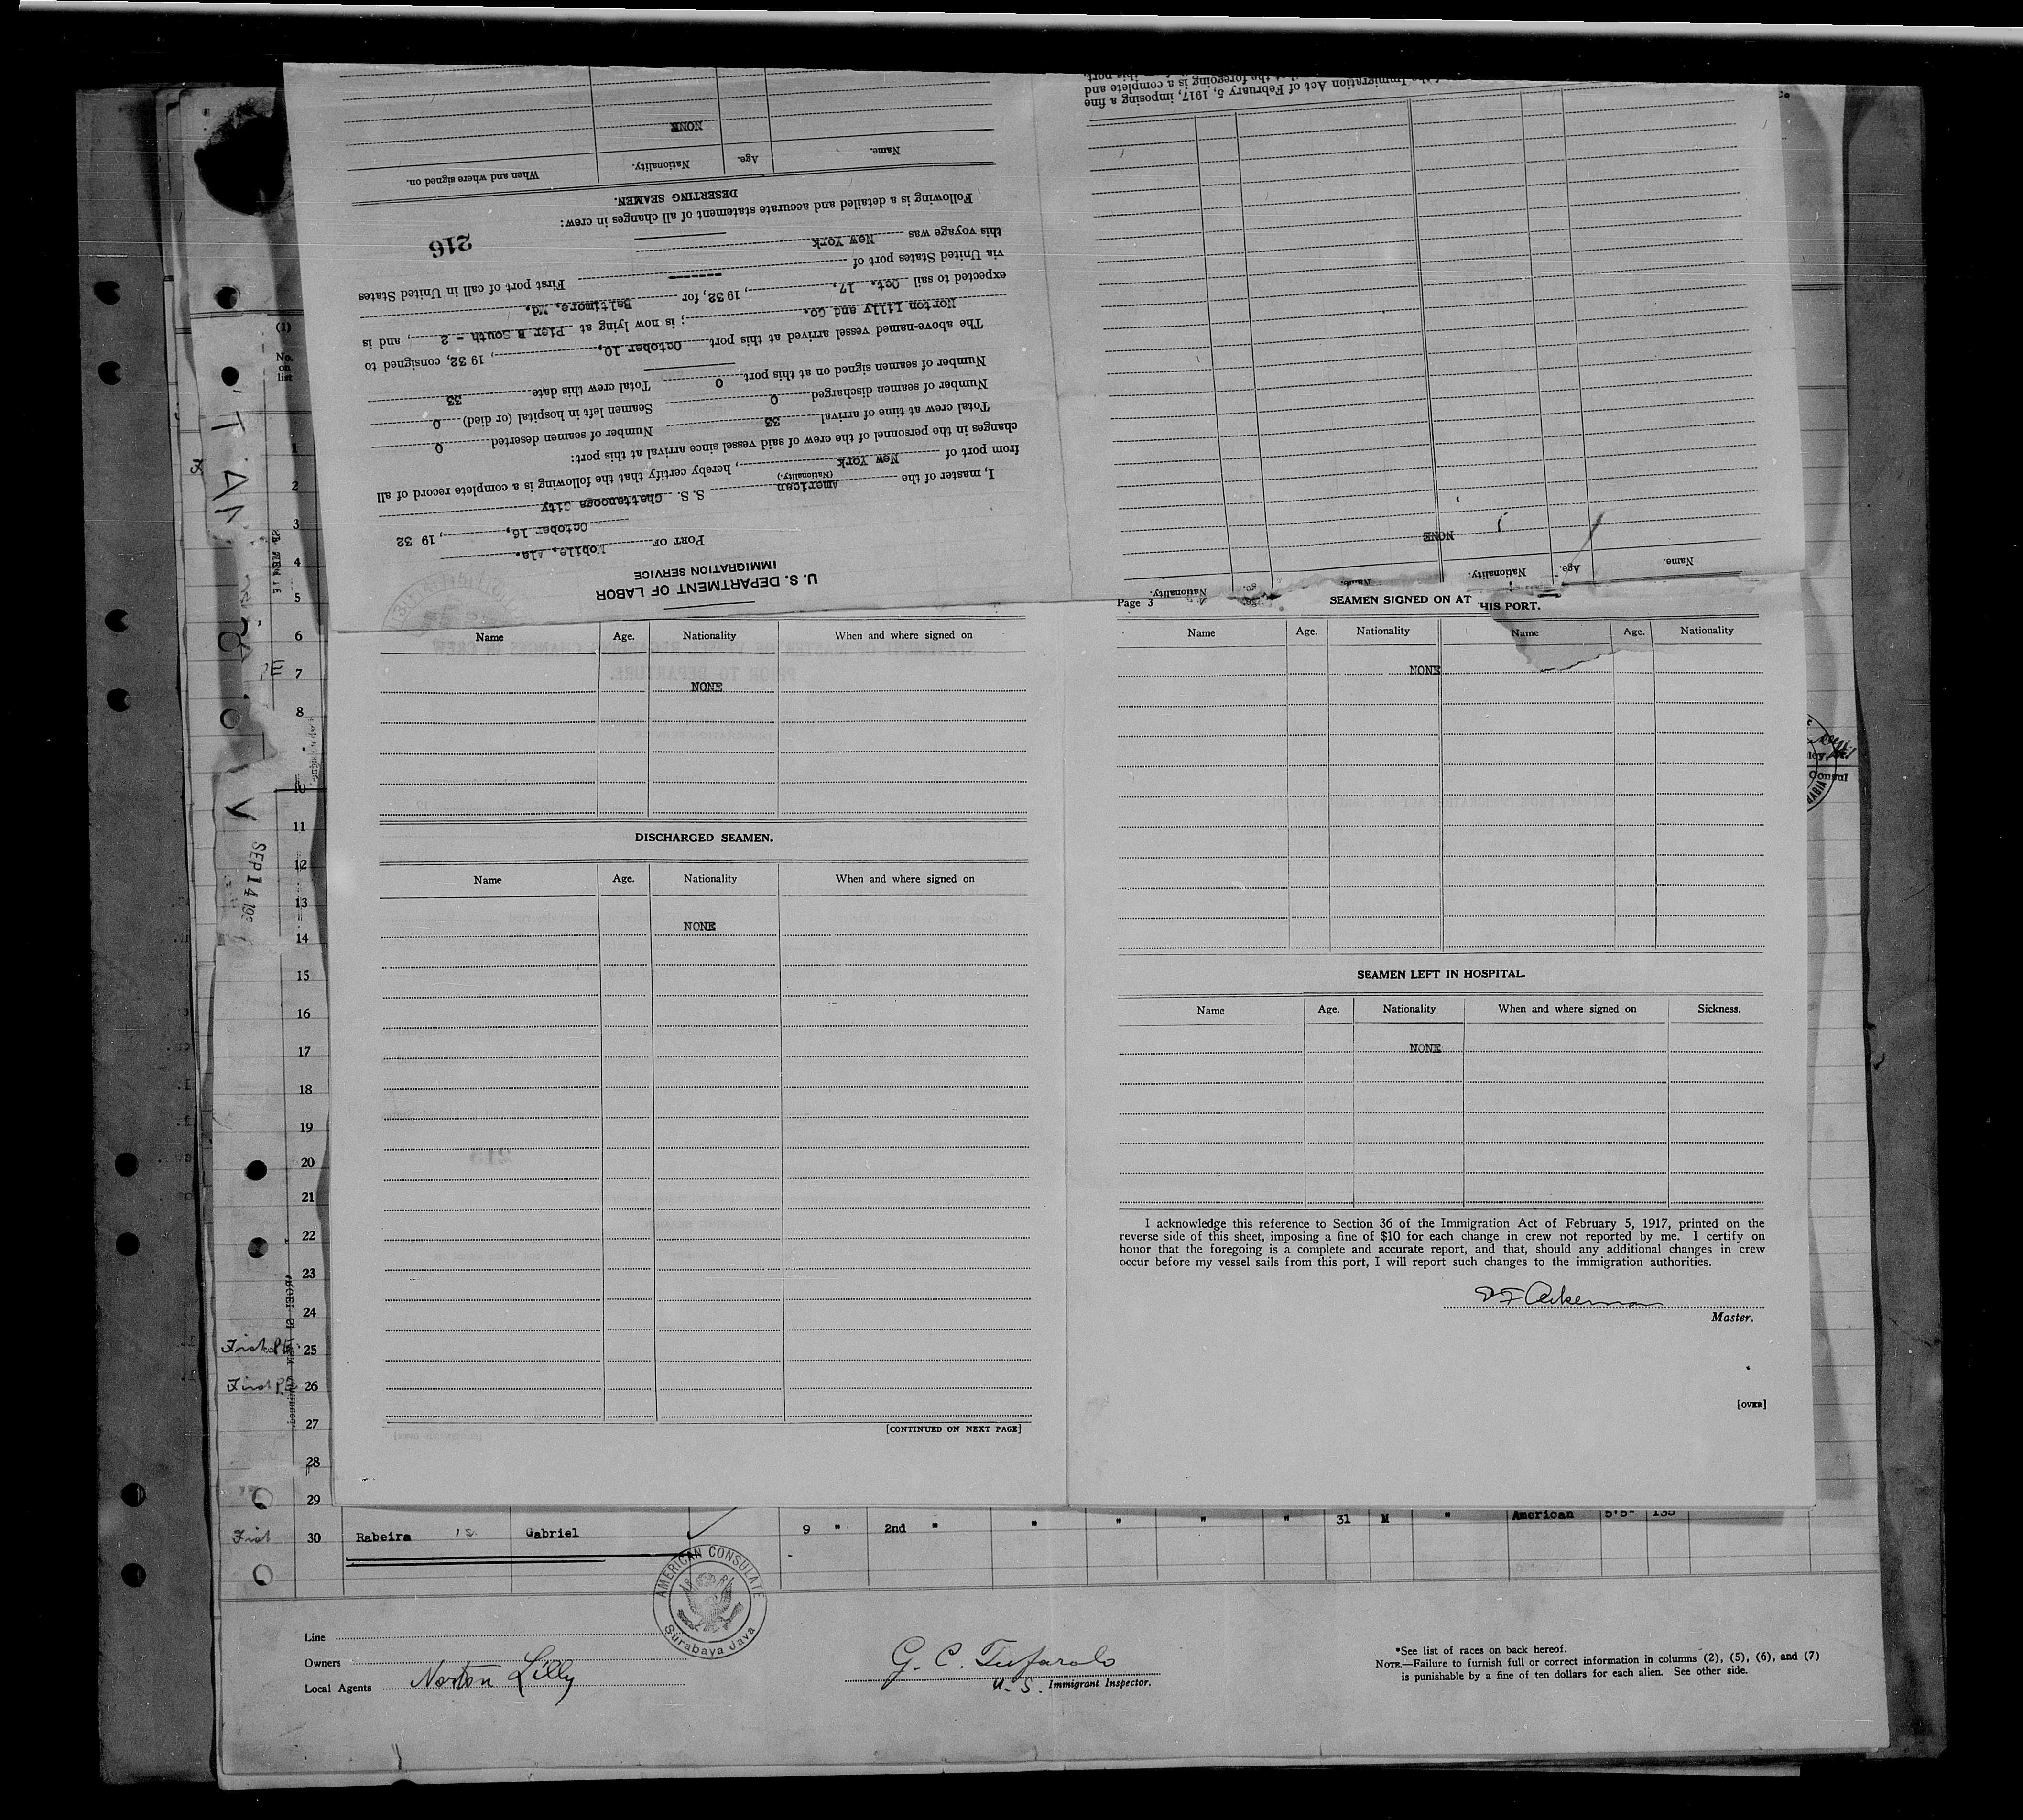 U. S. DEPARTMENT OF LABOR
IMMIGRATION SERVICE
PORT OF Mobile, Ala.
October 16, 1932
I, master of the American S. S. Chattanooga City
(Nationality.)
from port of New York, hereby certify that the following is a complete record of all
changes in the personnel of the crew of said vessel since arrival at this port:
Total crew at time of arrival 33 Number of seamen deserted 0
Number of seamen discharged 0 Seamen left in hospital (or died) 0
Number of seamen signed on at this port 0 Total crew this date 33
The above-named vessel arrived at this port October 10, 1932, consigned to
Norton Lilly and Co.; is now lying at Pier B South - 2, and is
expected to sail Oct. 17, 1932, for Baltimore, Md.
via United States port of ------- First port of call in United States
this voyage was New York
216
Following is a detailed and accurate statement of all changes in crew:
DESERTING SEAMEN.
Name. Age. Nationality. When and where signed on.
NONE
Name. Age. Nationality. Name. Age. Nationality.
NONE
Immigration Act of February 5, 1917, imposing a fine
the foregoing is a complete and
this port,
Name Age. Nationality When and where signed on
NONE
DISCHARGED SEAMEN.
Name Age. Nationality When and where signed on
NONE
[CONTINUED ON NEXT PAGE]
Page 3
SEAMEN SIGNED ON AT HIS PORT.
Name Age. Nationality Name Age. Nationality
NONE
SEAMEN LEFT IN HOSPITAL.
Name Age. Nationality When and where signed on Sickness.
NONE
I acknowledge this reference to Section 36 of the Immigration Act of February 5, 1917, printed on the
reverse side of this sheet, imposing a fine of $10 for each change in crew not reported by me. I certify on
honor that the foregoing is a complete and accurate report, and that, should any additional changes in crew
occur before my vessel sails from this port, I will report such changes to the immigration authorities.
Ackerman
Master.
[OVER]
(1)
No.
on
list
1
2
3
4
5
6
7
8
10
11
12
13
14
15
16
17
18
19
20
21
22
23
24
25
26
27
28
29
SEP 14
First
First
Consul
American 5'5" 135
30 Rabeira Gabriel 9 " 2nd " " " " " 31 M "
AMERICAN CONSULATE
Surabaya Java
Line
Owners
Local Agents Norton Lilly
G. C. Tufarolo
U. S. Immigrant Inspector.
*See list of races on back hereof.
NOTE.—Failure to furnish full or correct information in columns (2), (5), (6), and (7)
is punishable by a fine of ten dollars for each alien. See other side.